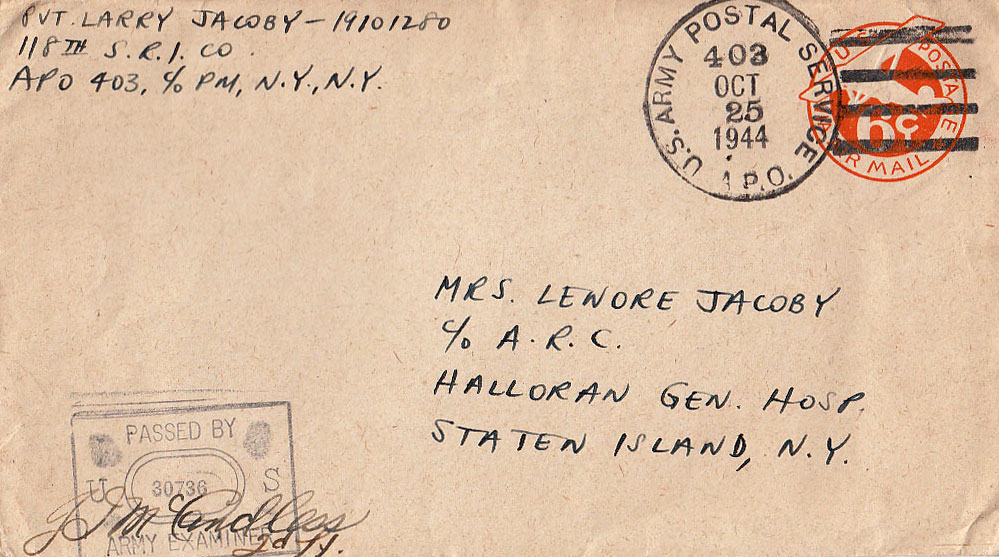 PVT. LARRY JACOBY - 19101280
118TH S.R.I. CO.
APO 403, c/o PM, N.Y., N.Y.
U.S. ARMY POSTAL SERVICE
403
OCT
25
1944
A.P.O.
POSTAGE
6¢
AIR MAIL
MRS. LENORE JACOBY
c/o A.R.C.
HALLORAN GEN. HOSP.
STATEN ISLAND, N.Y.
PASSED BY
U S
30736
ARMY EXAMINER
McCandless
2d Lt.